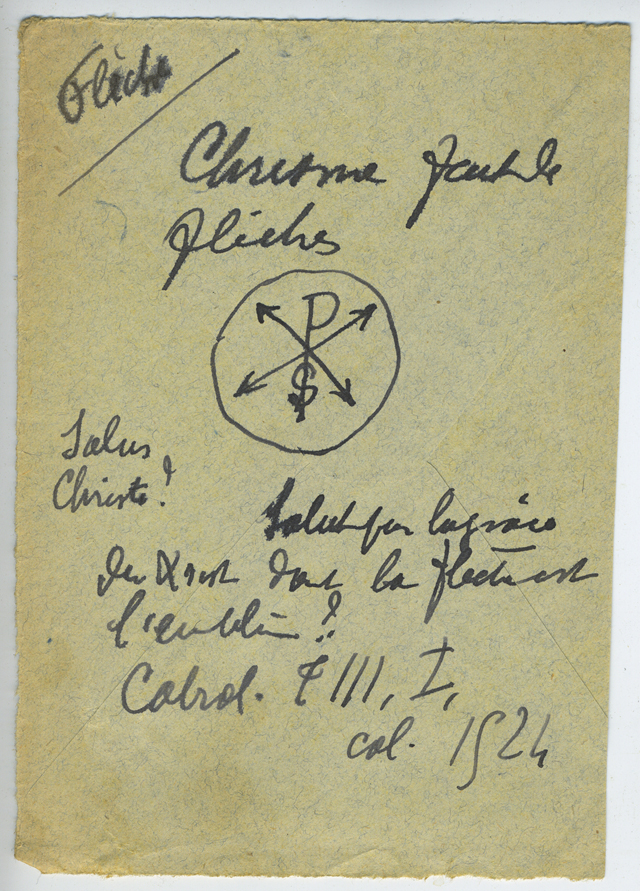 Flèche
Chrisme fait de
flèches
P
S
Salus
Christi?
Salut par la grâce
du Xrist dont la flèche est
l'emblème?
Cabrol. T III, I,
col. 1524